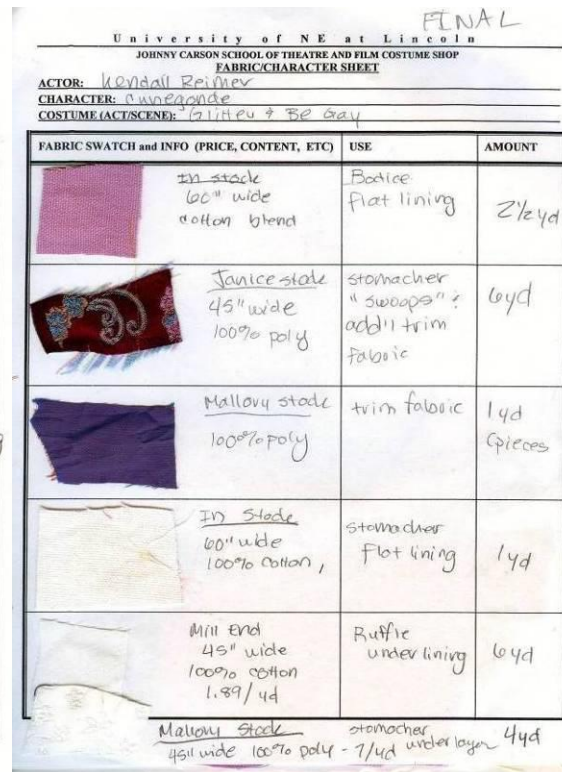 FINAL
University of NE at Lincoln
JOHNNY CARSON SCHOOL OF THEATRE AND FILM COSTUME SHOP
FABRIC/CHARACTER SHEET
ACTOR: Kendall Reimer
CHARACTER: Cunegonde
COSTUME (ACT/SCENE): Glitter & Be Gay
FABRIC SWATCH and INFO (PRICE, CONTENT, ETC) USE AMOUNT
In stock
60" wide
cotton blend
Bodice
flat lining
2 1/2 yd
Janice stock
45" wide
100% poly
stomacher
"swoops" &
add'l trim
fabric
6yd
Mallory stock
100% poly
trim fabric
1yd
(pieces
In Stock
60" wide
100% cotton,
stomacher
flat lining
1yd
Mill End
45" wide
100% cotton
1.89/yd
Ruffle
underlining
6yd
Mallory Stock
45" wide 100% poly - 7/yd
stomacher
underlayer
4yd